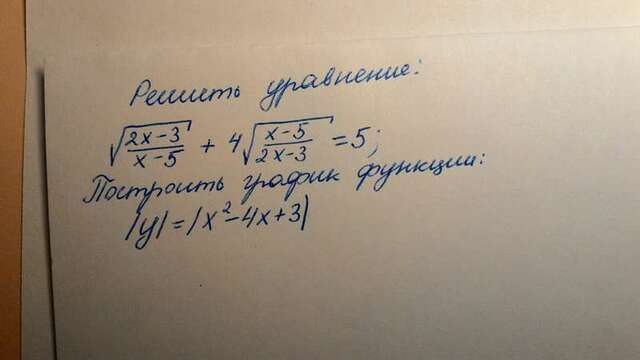 Решить уравнение:
√((2x-3)/(x-5)) + 4√((x-5)/(2x-3)) = 5;
Построить график функции:
|y| = |x² - 4x + 3|